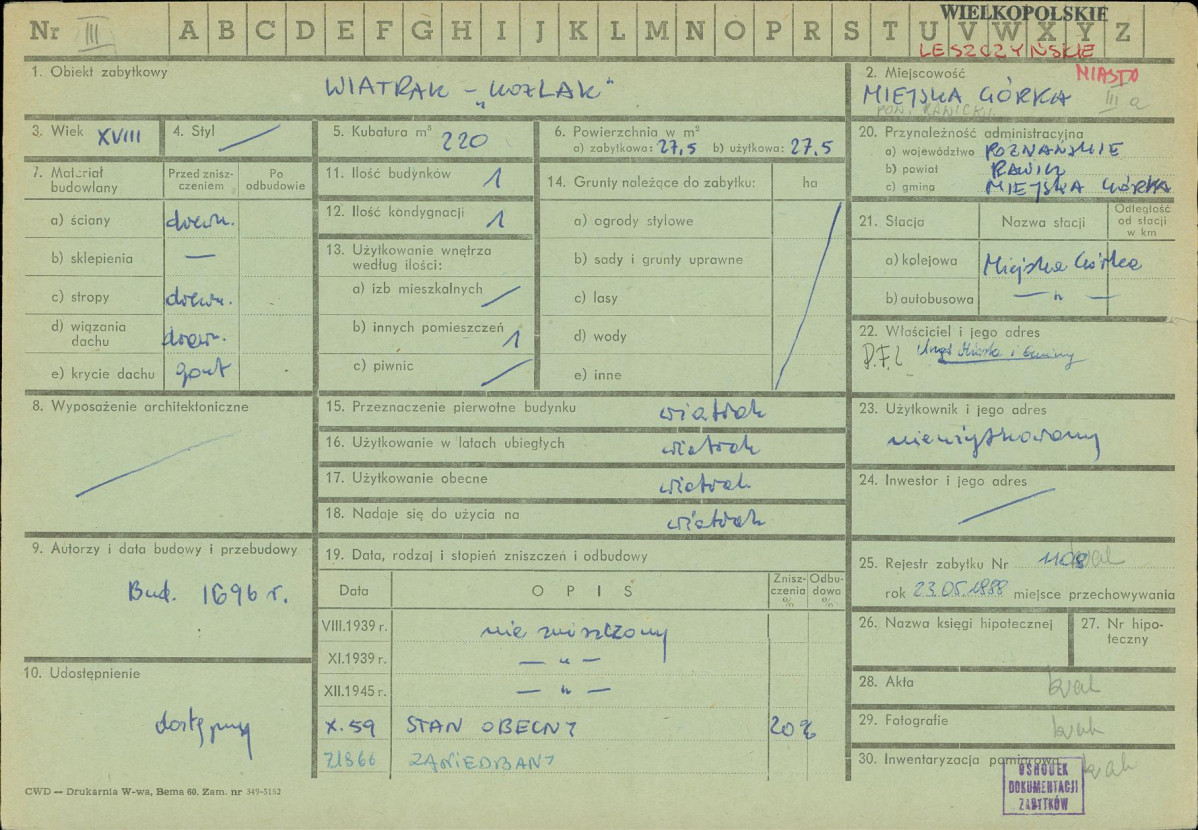 Nr III A B C D E F G H I J K L M N O P R S T U V W X Y Z
WIELKOPOLSKIE
LESZCZYŃSKIE
1. Obiekt zabytkowy
WIATRAK - „KOZLAK"
2. Miejscowość MIASTO
MIEJSKA GÓRKA III a
3. Wiek XVIII
4. Styl
5. Kubatura m³
220
6. Powierzchnia w m²
a) zabytkowa: 27,5 b) użytkowa: 27,5
20. Przynależność administracyjna
a) województwo POZNAŃSKIE
b) powiat RAWICZ
c) gmina MIEJSKA GÓRKA
7. Materiał budowlany
Przed zniszczeniem
Po odbudowie
a) ściany drewn.
b) sklepienia —
c) stropy drewn.
d) wiązania dachu drewn.
e) krycie dachu gont
11. Ilość budynków 1
12. Ilość kondygnacji 1
13. Użytkowanie wnętrza
według ilości:
a) izb mieszkalnych
b) innych pomieszczeń 1
c) piwnic
14. Grunty należące do zabytku: ha
a) ogrody stylowe
b) sady i grunty uprawne
c) lasy
d) wody
e) inne
21. Stacja
Nazwa stacji
Odległość od stacji w km
a) kolejowa Miejska Górka
b) autobusowa — " —
22. Właściciel i jego adres
P.F.Z Urząd Miasta i Gminy
8. Wyposażenie architektoniczne
15. Przeznaczenie pierwotne budynku wiatrak
16. Użytkowanie w latach ubiegłych wiatrak
17. Użytkowanie obecne wiatrak
18. Nadaje się do użycia na wiatrak
23. Użytkownik i jego adres
nieużytkowany
24. Inwestor i jego adres
9. Autorzy i data budowy i przebudowy
Bud. 1696 r.
19. Data, rodzaj i stopień zniszczeń i odbudowy
Data
OPIS
Zniszczenia %
Odbudowa %
VIII.1939 r. nie zniszczony
XI.1939 r. — " —
XII.1945 r. — " —
X.59 STAN OBECNY 20%
ZANIEDBANY
25. Rejestr zabytku Nr 1108 brak
rok 23.05.1988 miejsce przechowywania
26. Nazwa księgi hipotecznej
27. Nr hipoteczny
10. Udostępnienie
dostępny
28. Akta brak
29. Fotografie brak
30. Inwentaryzacja pomiarowa brak
OŚRODEK
DOKUMENTACJI
ZABYTKÓW
CWD — Drukarnia W-wa, Bema 60. Zam. nr 349-5152